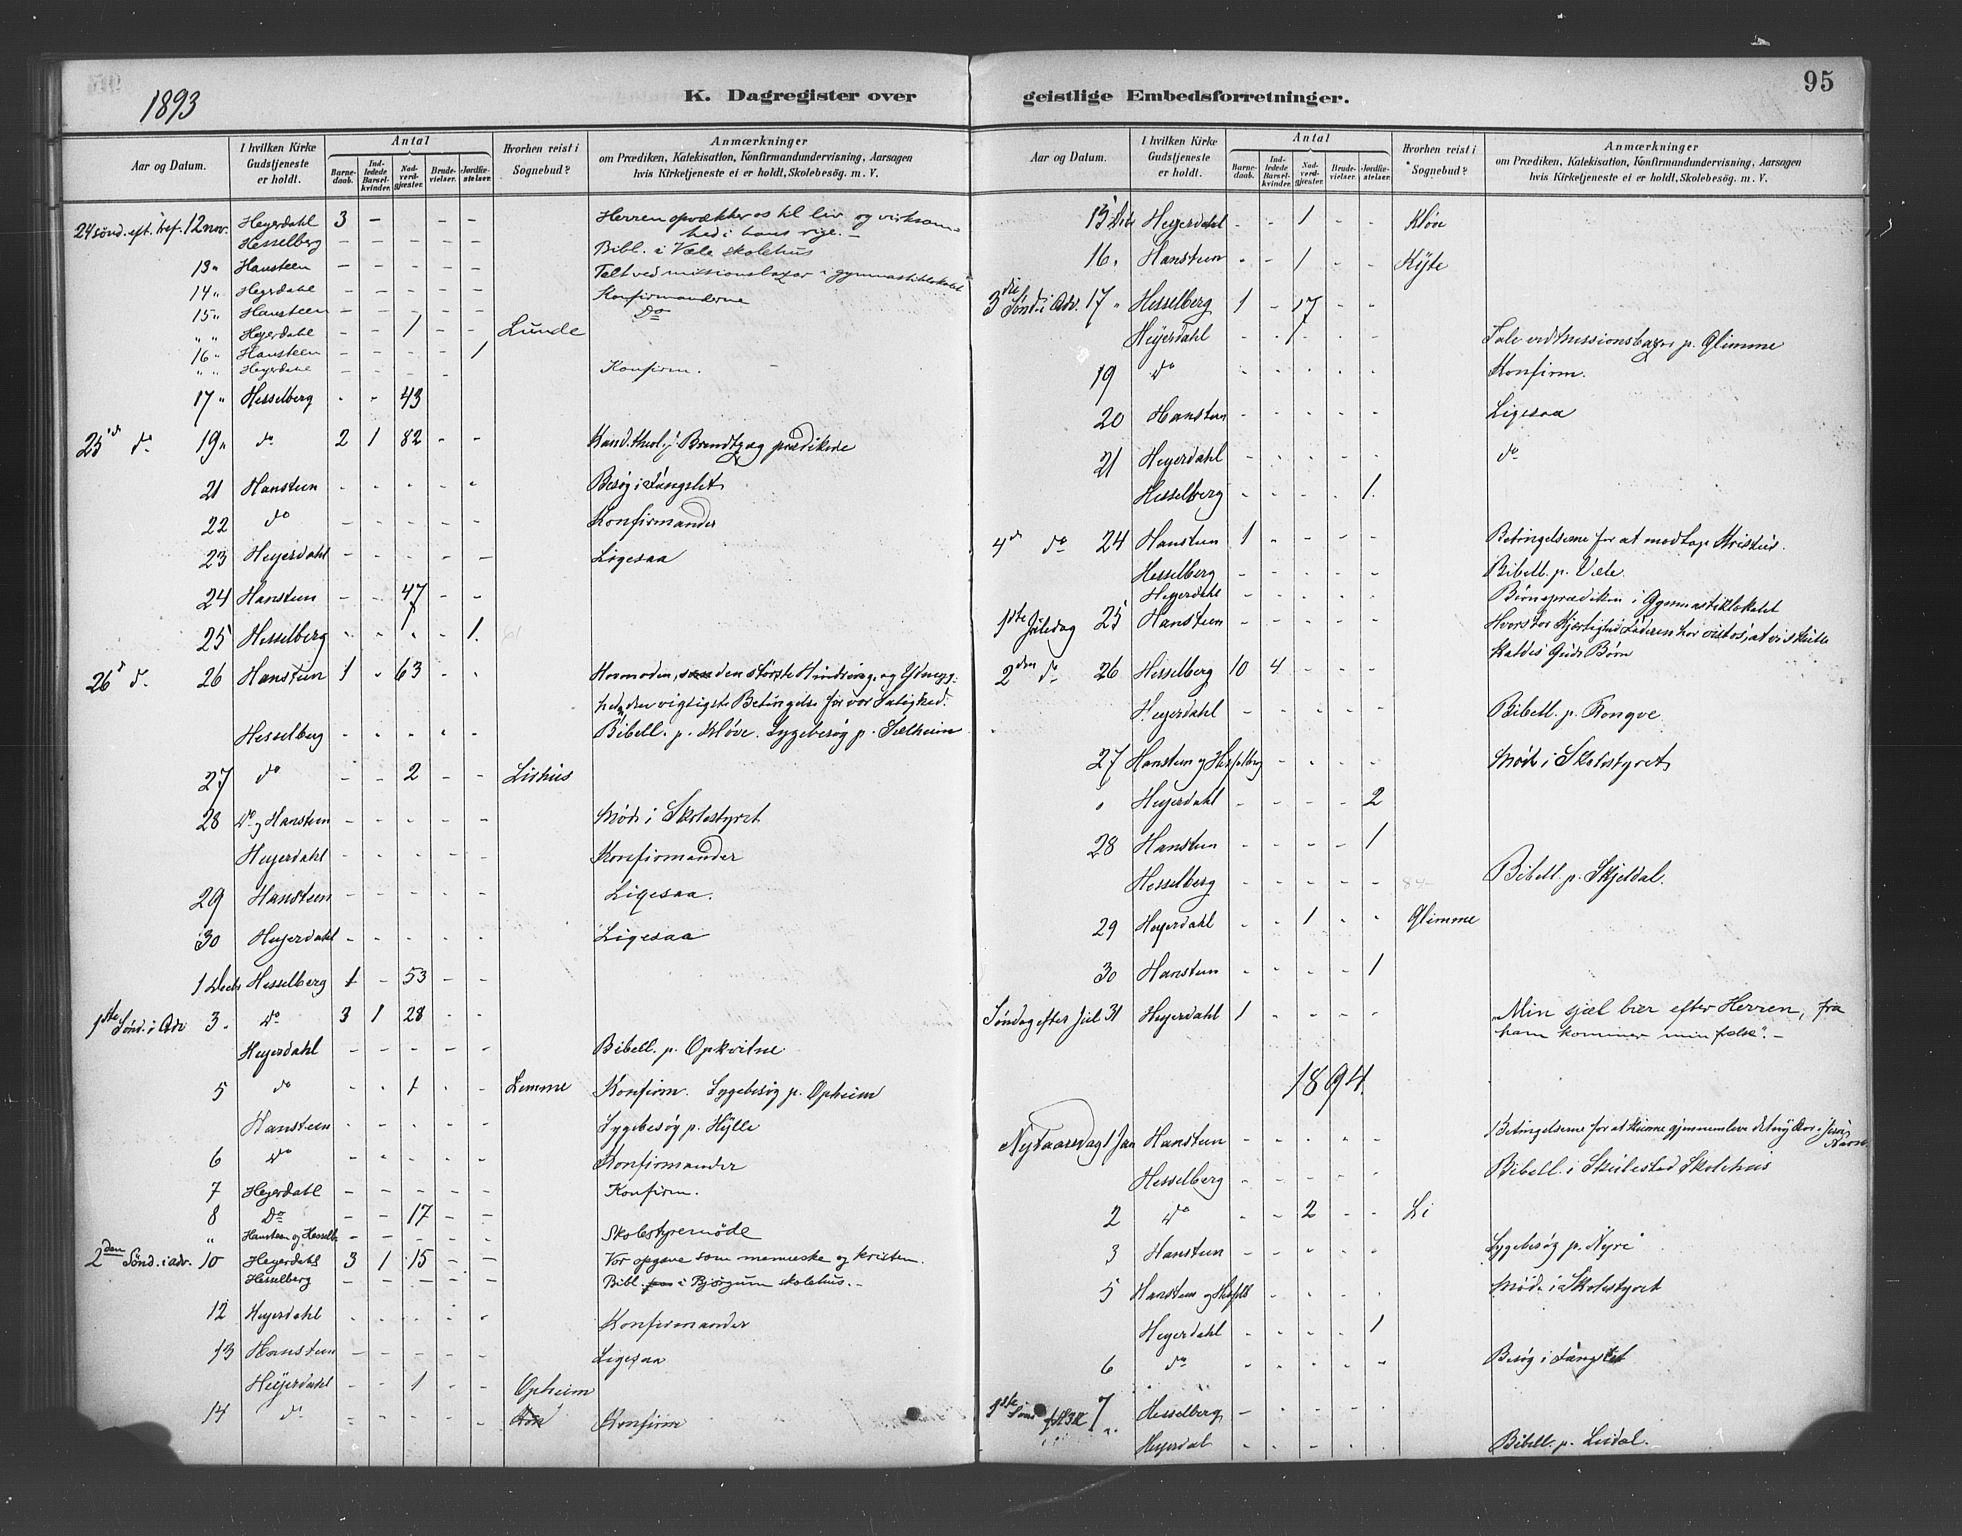 1893
K. Dagregister over
Aar og Datum. I hvilken Kirke Gudstjeneste er holdt. Antal Barnedaab. Indledede Barselkvinder. Nadverdgjester. Brudevielser. Jordfæstelser. Hvorhen reist i Sognebud? Anmærkninger om Prædiken, Katekisation, Konfirmandundervisning, Aarsagen hvis Kirketjeneste ei er holdt, Skolebesøg. m. V.
24 sønd. eft. tref. 12 nov. Heyerdahl 3 - - - Herren opvækker os til liv og virksom-
hed i hans rige. -
Hesselberg - - - - - Bibl. i Væle skolehus
13 " Hansteen - - - - - Talt ved missionsbazar i gymnastiklokalet
14 " Heyerdahl - - - - - Konfirmanderne
15 " Hansteen - - - - - Do
" " Heyerdahl - - 1 - - Lunde
16 " Hansteen - - - - 1
" " Heyerdahl - - - - - Konfirm.
17 " Hesselberg - - 43
25d do 19 " do 2 1 82 - - Kand. theol. J. Brandtzæg prædikede
21 Hansteen - - - - - Besøg i Fængslet
22 do - - - - - Konfirmander
23 Heyerdahl - - - - - Ligesaa
24 Hansteen - - 47 - -
25 Hesselberg - - - - 1.
26d d. 26 Hansteen 1 - 63 - - Hovmoden, den største Hindring, og Ydmyg-
hed, den vigtigste Betingelse for vor Salighed.
Hesselberg - - - - - Bibell. p. Kløve. Sygebesøg p. Sælheim
27 do - - 2 - - Lirhus
28 do og Hansteen - - - - - Møde i Skolestyret
Heyerdahl - - - - - Konfirmander
29 Hansteen - - - - - Ligesaa.
30 Heyerdahl - - - - - Ligesaa
1 Decb Hesselberg 1 - 53 - -
1ste Sønd. i Adv 3. do 3 1 28 - -
Heyerdahl - - - - - Bibell. p. Opkvitne
5 do - - 1 - - Lemme Konfirm. Sygebesøg p. Opheim
Hansteen - - - - - Sygebesøg p. Hylle
6 do - - - - - Konfirmander
7 Heyerdahl - - - - - Konfirm.
8 Do - - 17 - -
" Hansteen og Hesselb. - - - - - Skolestyremøde
2den Sønd. i adv. 10 Heyerdahl 3 1 15 - - Vor opgave som menneske og kristen.
Hesselberg - - - - - Bibl. i Bjørgum skolehus. -
12 Heyerdahl - - - - - Konfirmander
13 Hansteen - - - - - Ligesaa
Heyerdahl - - 1 - - Opheim
14 do - - - - - Kon Konfirm
95
geistlige Embedsforretninger.
Aar og Datum. I hvilken Kirke Gudstjeneste er holdt. Antal Barnedaab. Indledede Barselkvinder. Nadverdgjester. Brudevielser. Jordfæstelser. Hvorhen reist i Sognebud? Anmærkninger om Prædiken, Katekisation, Konfirmandundervisning, Aarsagen hvis Kirketjeneste ei er holdt, Skolebesøg. m. V.
15 Heyerdahl - - 1 - - Kløve
16 " Hansteen - - 1 - - Kyte
3die Sønd. i Adv. 17 " Hesselberg 1 - 17 - -
Heyerdahl - - 1 - - Tale ved Missionsbazar p. Glimme
19 do - - - - - Konfirm.
20 Hansteen - - - - - Ligesaa
21 Heyerdahl - - - - - do
Hesselberg - - - - 1.
4d do 24 Hansteen 1 - - - - Betingelserne for at modtage Kristus.
Hesselberg - - - - - Bibell. p. Væle.
Heyerdahl - - - - - Børneprædiken i Gymnastiklokalet
1ste Juledag 25 Hansteen - - - - - Hvor stor Kjærlighed Faderen har vist os, at vi skulle
kaldes Guds Børn
2den do 26 Hesselberg 10 4 - - -
Heyerdahl - - - - - Bibell. p. Rongve.
27 Hansteen og Hesselberg - - - - Møde i Skolestyret
" Heyerdahl - - - - 2
28 Hansteen - - - - 1
Hesselberg - - - - - Bibell. p. Skjeldal.
29 Heyerdahl - - 1 - - Glimme
30 Hansteen - - - - 1
Søndag efter Jul 31 Heyerdahl 1 - - - - "Min sjæl bier efter Herren, fra
ham kommer min frelse". -
1894.
Nytaarsdag 1 Jan Hansteen - - - - - Betingelserne for at kunne gjennemleve det nye Aar i Jesu
Navn
Hesselberg - - - - - Bibell. i Skulestad Skolehus
2 do - - 2 - - Li
3 Hansteen - - - - - Sygebesøg p. Nyre
5 Hansteen og Hesselb - - - - Møde i Skolestyret
Heyerdahl - - - - 1
6 do - - - - - Besøg i Fængslet
1ste Sønd 7 Hesselberg - - - - -
Heyerdal - - - - - Bibell. p. Lirdal.